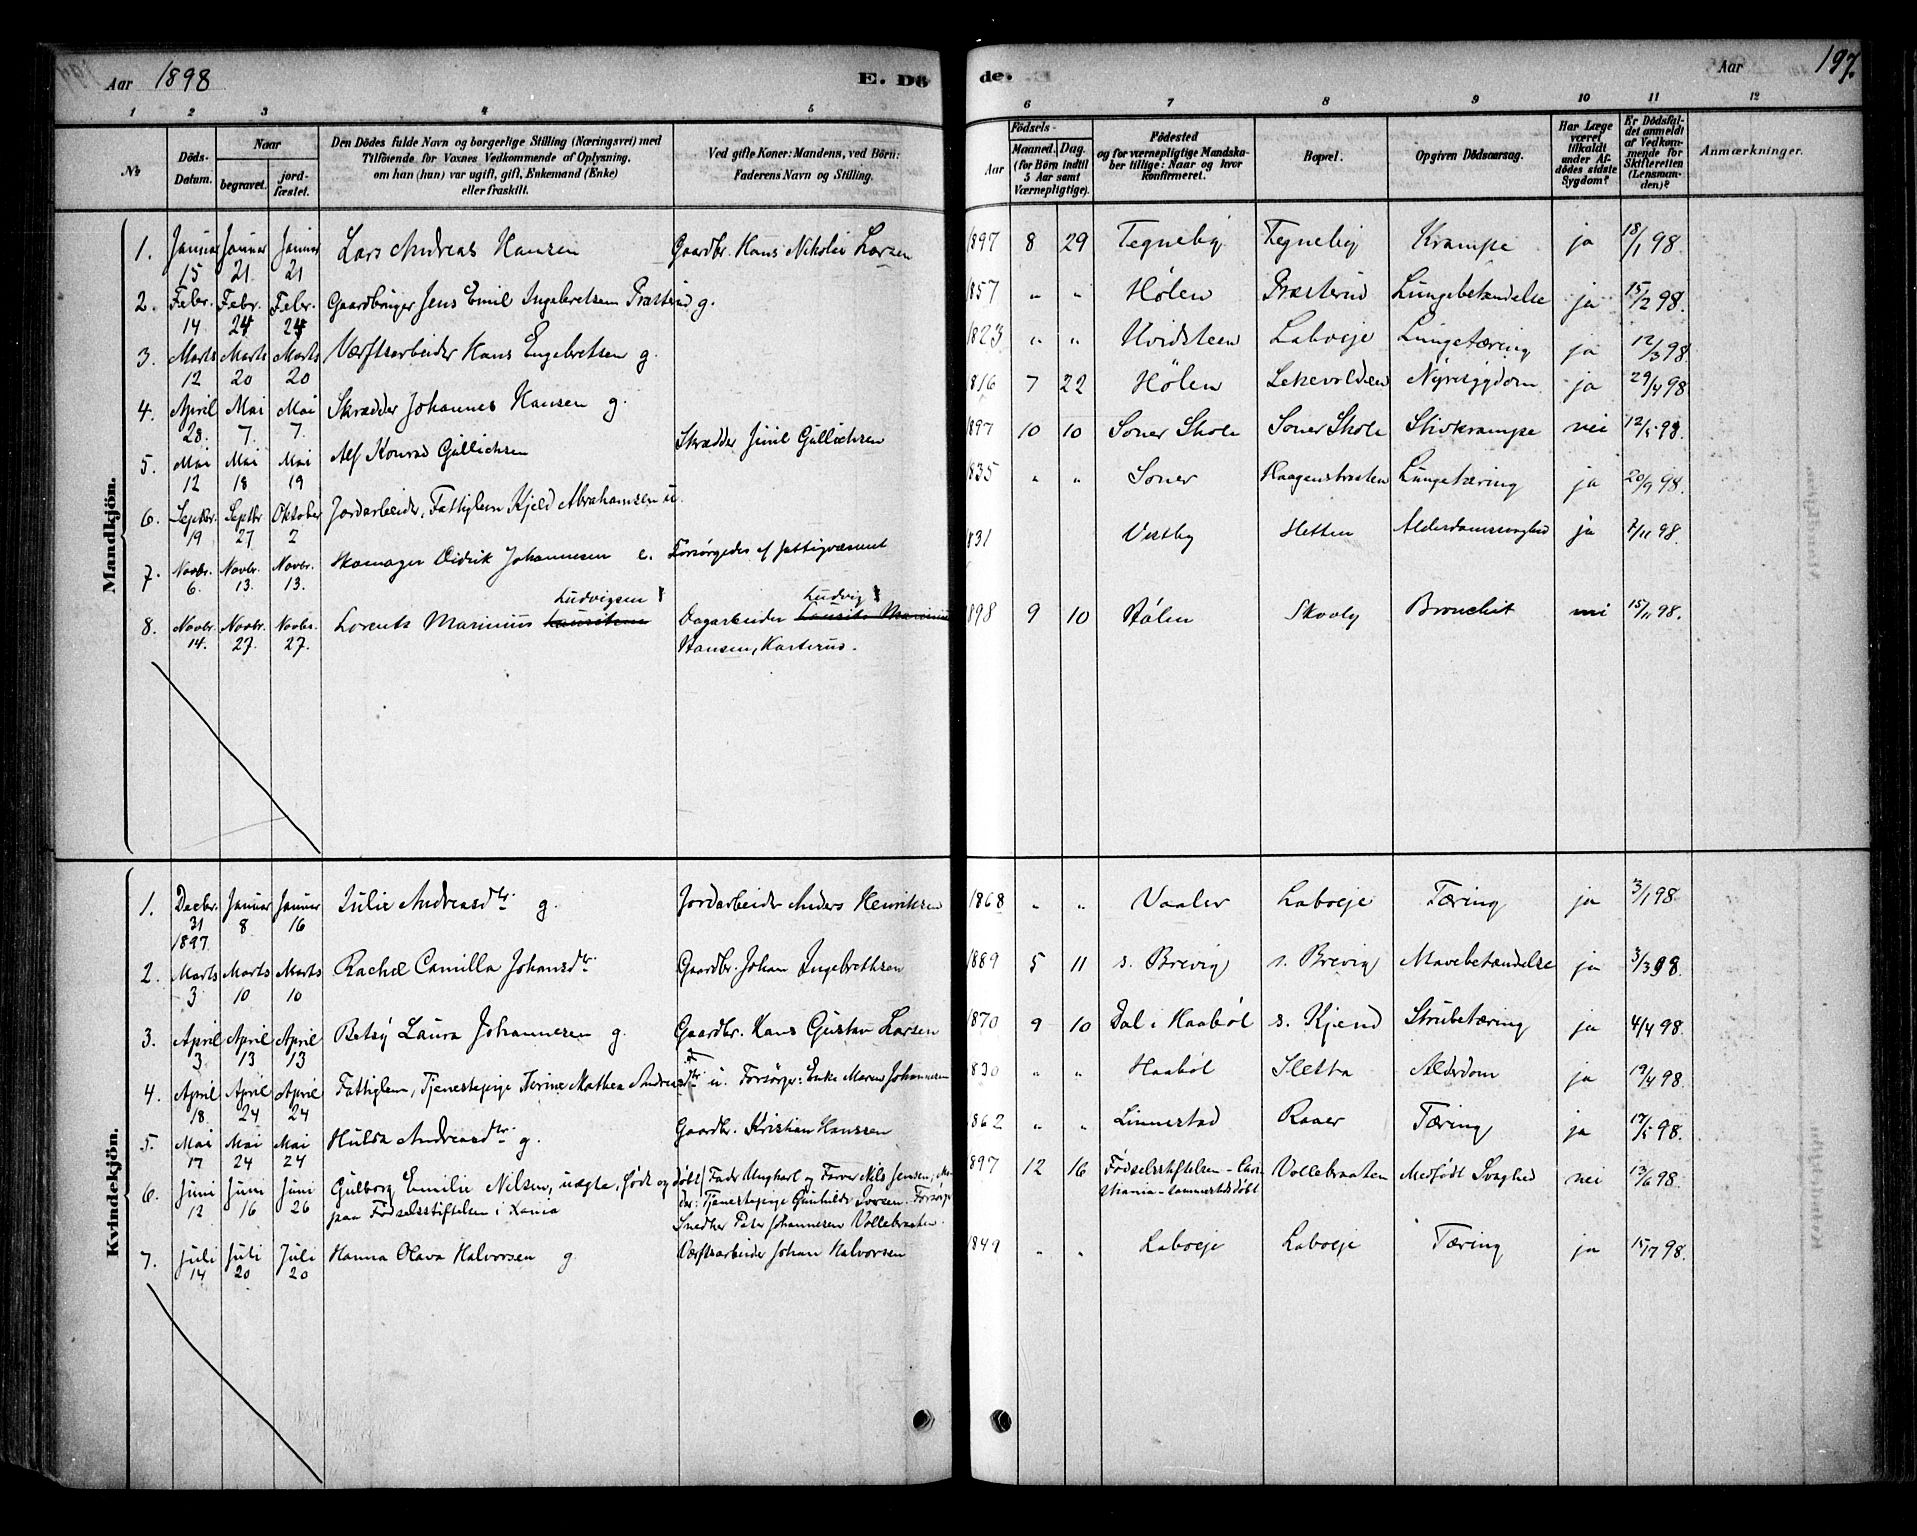 Aar 1898 E. Döde. Aar 197.
1 2 3 4 5 6 7 8 9 10 11 12
No
Döds-Datum.
Naar
begravet.
jord-fæstet.
Den Dödes fulde Navn og borgerlige Stilling (Næringsvei) med
Tilföiende for Voxnes Vedkommende af Oplysning,
om han (hun) var ugift, gift, Enkemand (Enke)
eller fraskilt.
Ved gifte Koner: Mandens, ved Börn:
Faderens Navn og Stilling.
Födsels-
Aar
Maaned. Dag.
(for Börn indtil
5 Aar samt
Værnepligtige).
Födested
og for værnepligtige Mandska-
ber tillige: Naar og hvor
konfirmeret.
Bopæl.
Opgiven Dödsaarsag.
Har Læge
været
tilkaldt
under Af-
dödes sidste
Sygdom?
Er Dödsfal-
det anmeldt
af Vedkom-
mende for
Skifteretten
(Lensman-
den)?
Anmærkninger.
Mandkjön.
1. Januar 15 Januar 21. Januar 21 Lars Andreas Hansen Gaardbr. Hans Nikolai Larsen 1897 8 29 Tegneby Tegneby Krampe ja 18/1 98.
2. Febr. 14 Febr. 24 Febr. 24 Gaardbruger Jens Emil Ingebretsen Præsterud g. 1857 " " Hølen Præsterud Lungebetændelse ja 15/2 98.
3. Marts 12 Marts 20 Marts 20 Værftsarbeider Hans Engebretsen g. 1823 " " Hvidsteen Laboeje Lungetæring ja 12/3 98
4. April 28. Mai 7. Mai 7. Skrædder Johannes Hansen g. 1816 7 22 Hølen Lekevolden Nyresygdom ja 29/4 98.
5. Mai 12 Mai 18 Mai 19 Alf Konrad Gullichsen Skrædder Gullichsen 1897 10 10 Soner Skole Soner Skole Stivkrampe nei 12/5 98.
6. Septbr. 19 Septbr 27 Oktober 2 Jordarbeider, Fattiglem Kjeld Abrahamsen u. 1835 " " Soner Haagenstrasten Lungetæring ja 20/9 98.
7. Novbr. 6. Novbr. 13. Novbr. 13. Skomager Didrik Johannesen e. Forsørgedes af fattigvæsenet 1831 Vestby Sletten Alderdomssvaghed ja 7/11 98.
8. Novbr. 14. Novbr. 27. Novbr. 27. Lorentz Marinius Lauritsen Ludvigsen Dagarbeider Laurits Marinius Ludvig
Hansen, Kasterud. 1898 9 10 Hølen Skovly Bronchit nei 15/11 98.
Kvindekjön.
1. Decbr. 31 1897 Januar 8 Januar 16 Julie Andreasdtr. g. Jordarbeider Anders Henriksen 1868 " " Vaaler Laboeje Tæring ja 3/1 98
2. Marts 3 Marts 10 Marts 10 Rachel Camilla Johansdtr. Gaardbr. Johan Ingebrethsen 1889 5 11 s. Brevig s. Brevig Mavebetændelse ja 3/3 98.
3. April 3 April 13 April 13 Betsy Laura Johannesen g. Gaardbr. Hans Gustav Larsen 1870 9 10 Dal i Haabøl s. Kjend Strubetæring ja 4/4 98.
4. April 18 April 24 April 24 Fattiglem, Tjenestepige Terine Mathea Andreasdtr. u. Forsørger: Enke Maren Johannesen 1830 " " Haabøl Sletta Alderdom ja 19/4 98.
5. Mai 17 Mai 24 Mai 24 Hulda Andreasdtr. g. Gaardbr. Kristian Hanssen 1862 " " Linnestad Raaer Tæring ja 17/5 98.
6. Juni 12 Juni 16 Juni 26 Gulborg Emilie Nilsen, uægte, født og døbt
paa Fødselsstiftelsen i Xania Fader Ungkarl og Farver Nils Jensen, Mo-
der: Tjenestepige Gunhild Iversen. Forsørger
Snedker Peter Johannesen Vollebraaten. 1897 12 16 Fødselsstiftelsen - Chri
stiania - sammesteds døbt Vollebraaten Medfødt Svaghed nei 13/6 98.
7. Juli 14 Juli 20 Juli 20 Hanna Olava Halvorsen g Værftsarbeider Johan Halvorsen 1849 " " Laboeje Laboeje Tæring ja 15/7 98.